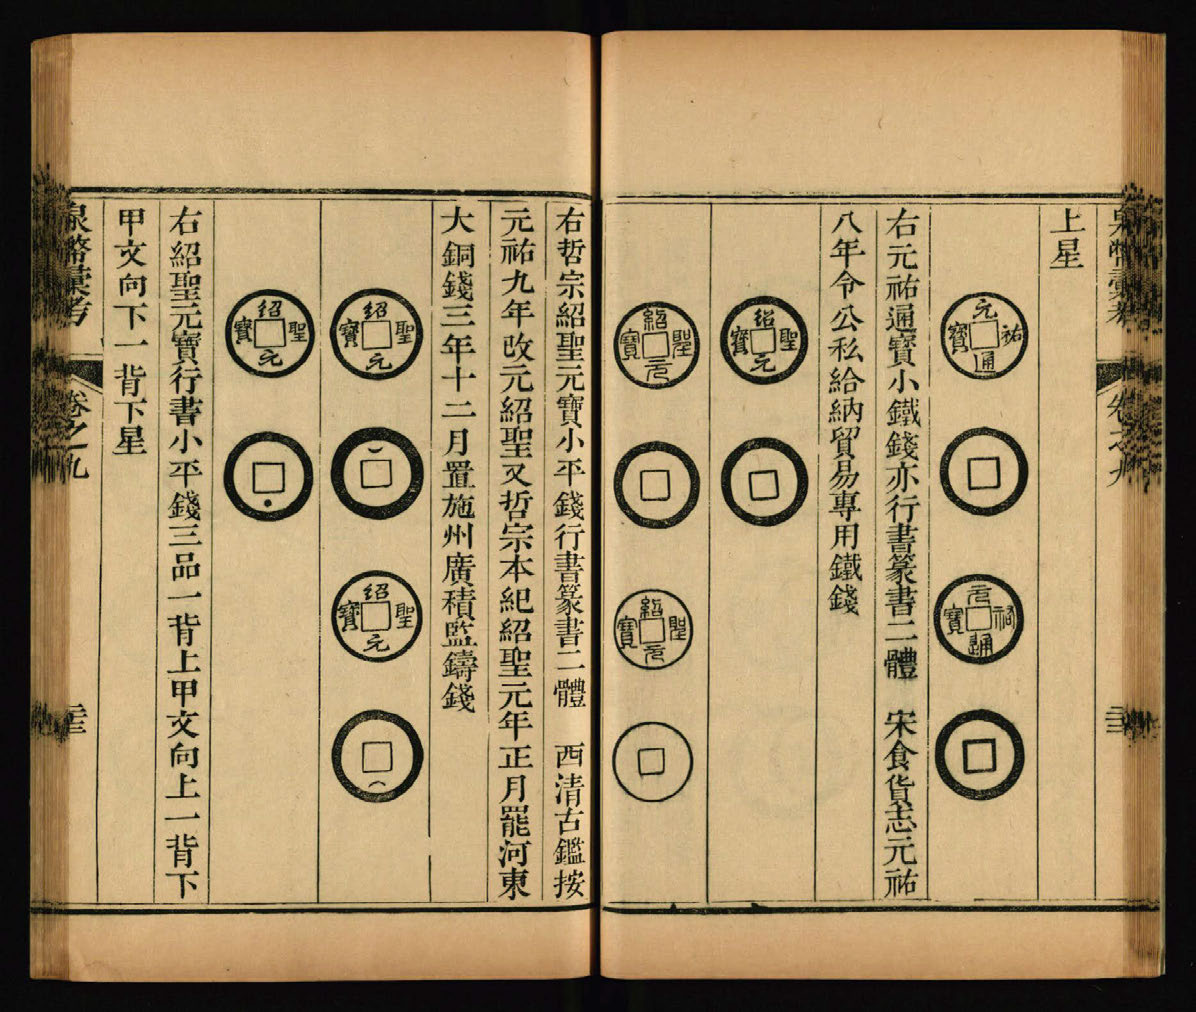 泉幣彙考
卷之九
上星
元祐通寶
元祐通寶
右元祐通寶小鐵錢亦行書篆書二體　宋食貨志元祐
八年令公私給納貿易專用鐵錢
紹聖元寶
紹聖元寶
紹聖元寶
右哲宗紹聖元寶小平錢行書篆書二體　西清古鑑按
元祐九年改元紹聖又哲宗本紀紹聖元年正月罷河東
大銅錢三年十二月置施州廣積監鑄錢
紹聖元寶
紹聖元寶
紹聖元寶
右紹聖元寶行書小平錢三品一背上甲文向上一背下
甲文向下一背下星
泉幣彙考
卷之九